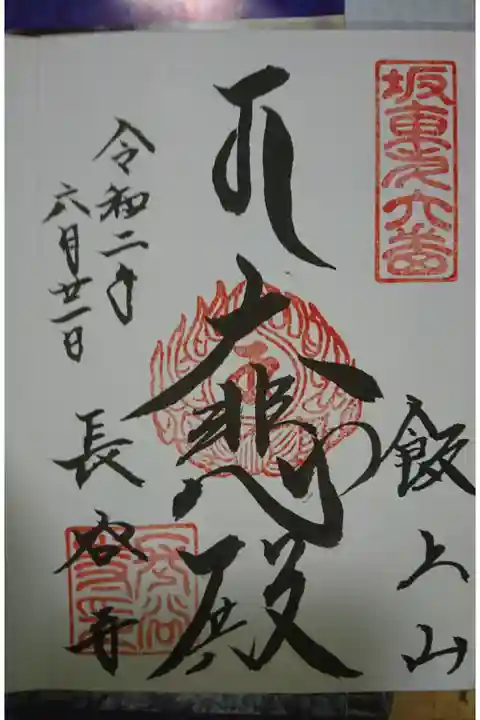 坂東第六番
飯上山
大悲殿
長谷寺
令和二年
六月廿一日